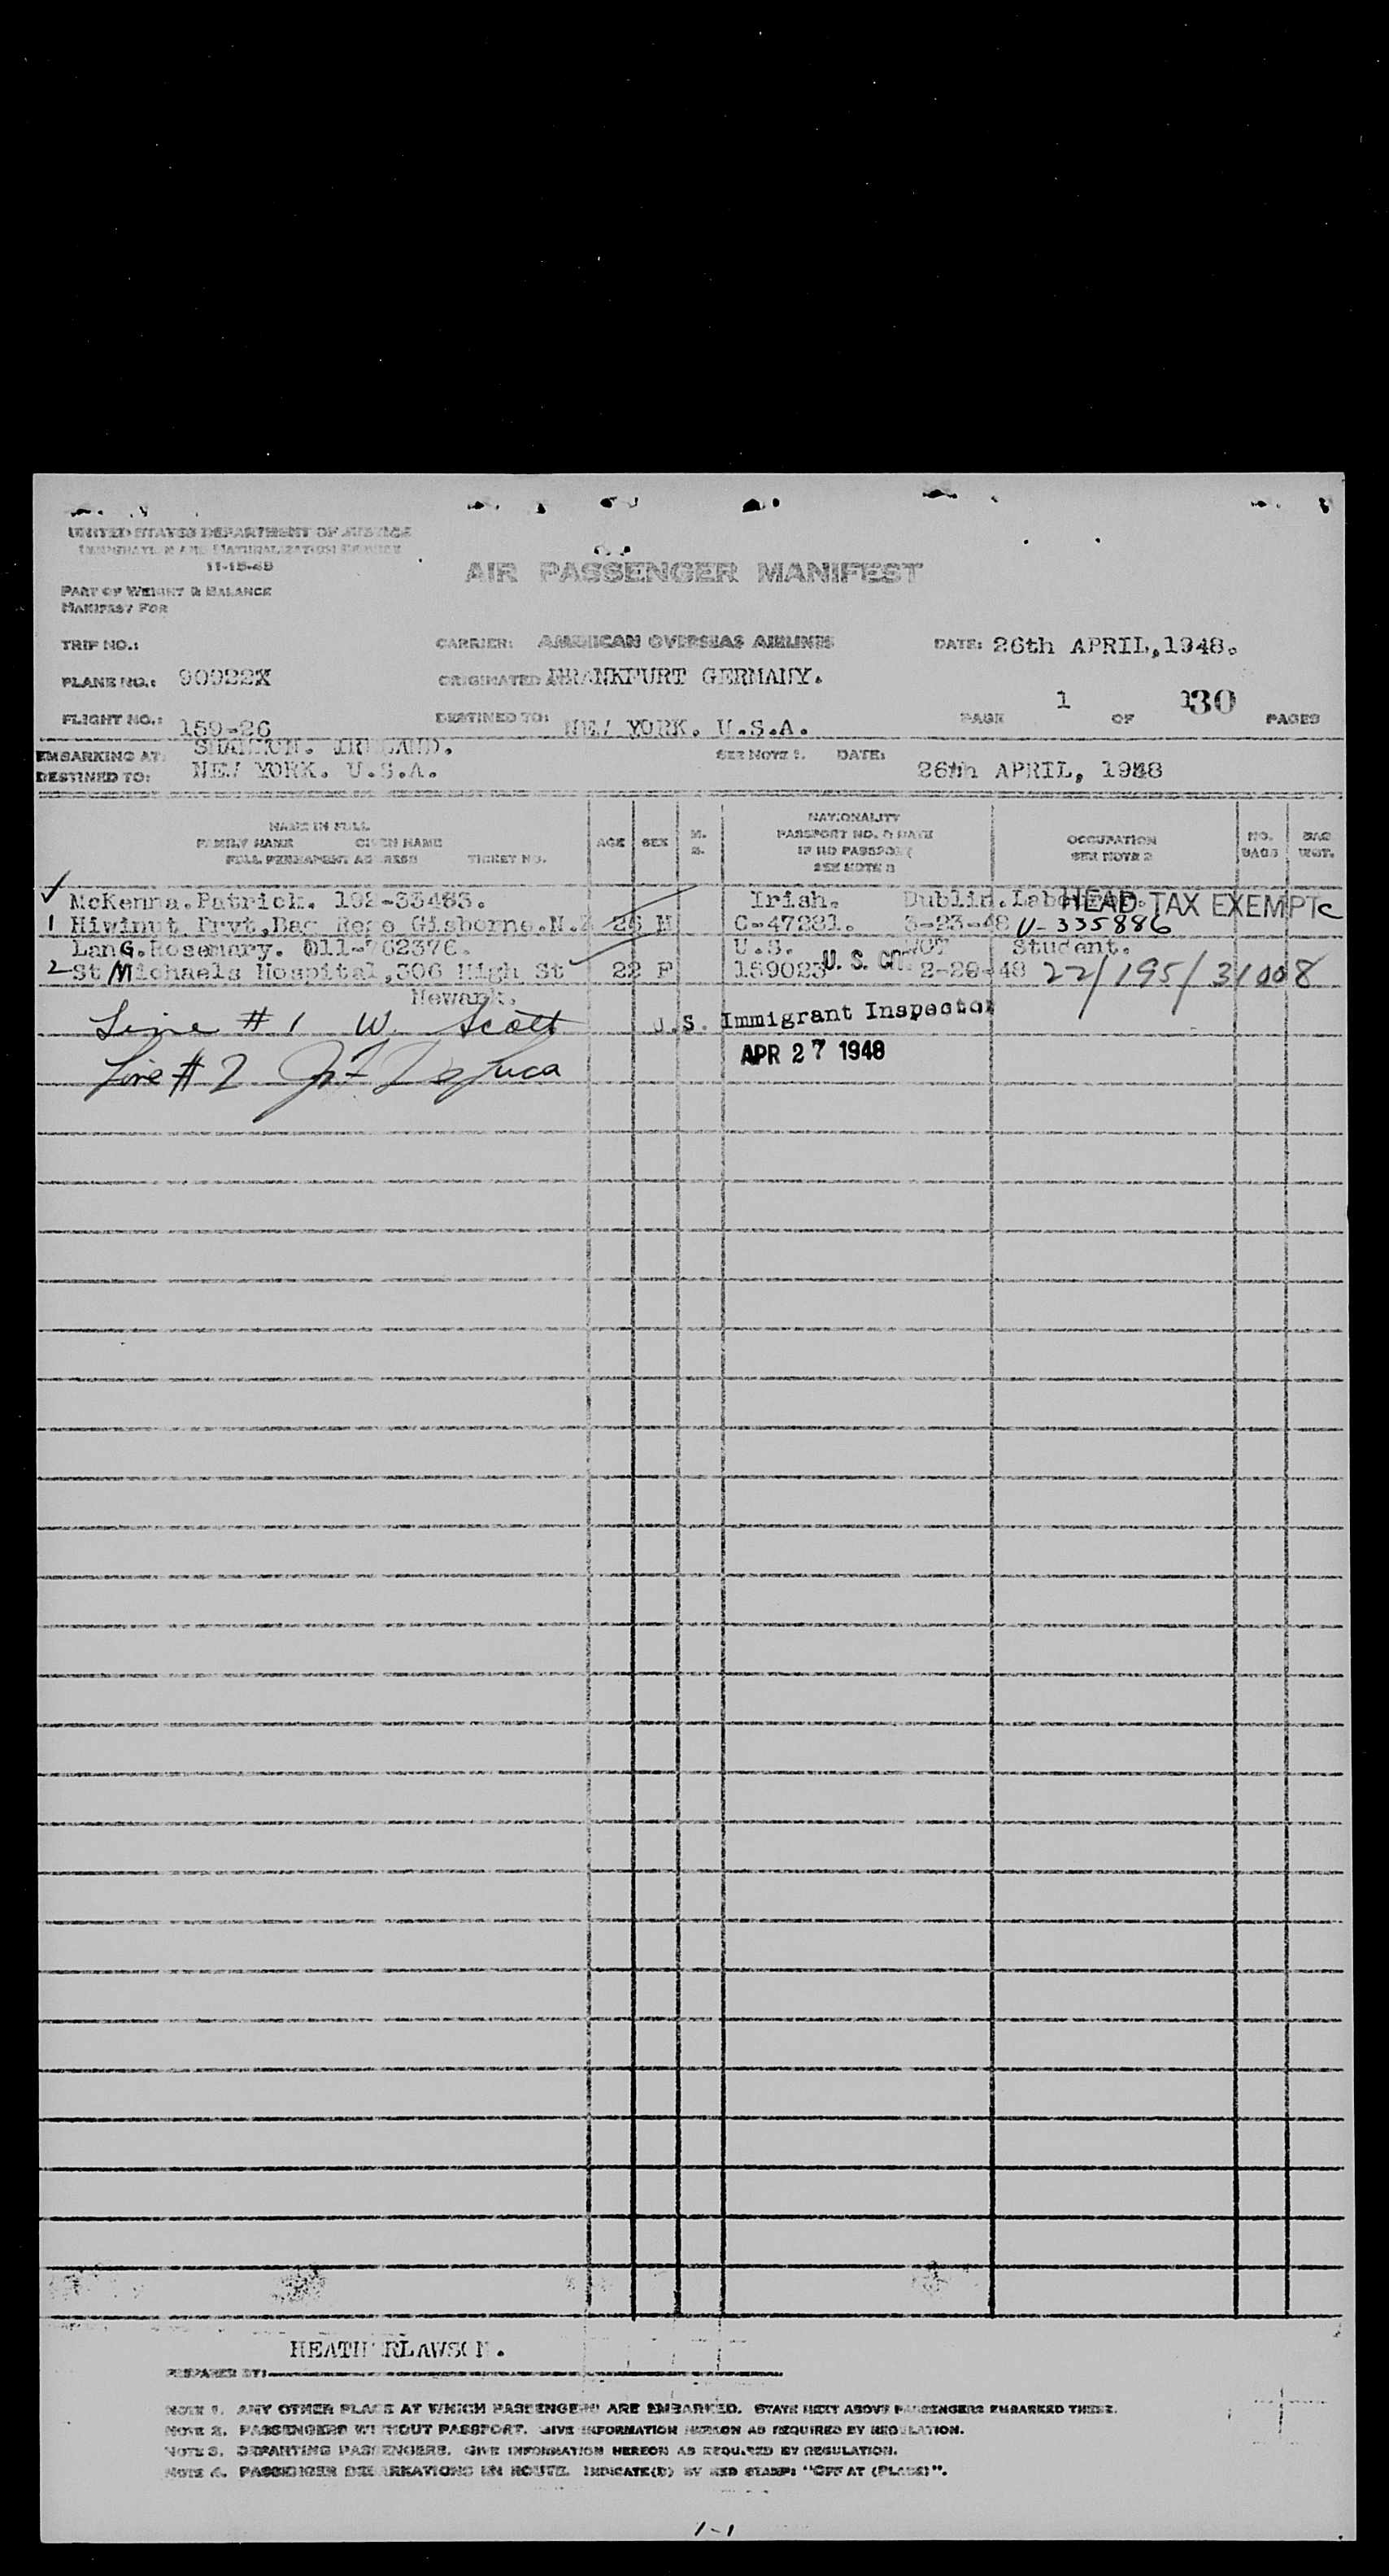 UNITED STATES DEPARTMENT OF JUSTICE
IMMIGRATION AND NATURALIZATION SERVICE
11-15-45
AIR PASSENGER MANIFEST
PART OF WEIGHT & BALANCE
MANIFEST FOR
TRIP NO.: CARRIER: AMERICAN OVERSEAS AIRLINES DATE: 26th APRIL,1948.
PLANE NO.: 90922X ORIGINATED FRANKFURT GERMANY.
FLIGHT NO.: 159-26 DESTINED TO: NEW YORK. U.S.A. PAGE 1 OF 130 PAGES
EMBARKING AT: SHANNON. IRELAND. SEE NOTE 1. DATE:
DESTINED TO: NEW YORK. U.S.A. 26th APRIL, 1948
NAME IN FULL
FAMILY NAME GIVEN NAME
FULL PERMANENT ADDRESS TICKET NO.
AGE SEX M. S.
NATIONALITY
PASSPORT NO. & DATE
IF NO PASSPORT
SEE NOTE 3
OCCUPATION
SEE NOTE 2
NO. BAGS
BAG WGT.
McKenna.Patrick. 102-33463. Irish. Dublin. HEAD TAX EXEMPT
1 Hiwinut Pvt.Bag Gisborne.N.Z 26 M C-47281. 3-23-48 V-335886
LanG.Rosemary. 011-762376. U.S. Student.
2 St Michaels Hospital,306 High St 22 F 159023 U.S. 2-20-48 22/195/31008
Newark.
Line #1 W. Scott U.S. Immigrant Inspector
APR 27 1948
Line #2
PREPARED BY:
NOTE 1. ANY OTHER PLACE AT WHICH PASSENGERS ARE EMBARKED. STATE NEXT ABOVE PASSENGERS EMBARKED THERE.
NOTE 2. PASSENGERS WITHOUT PASSPORT. GIVE INFORMATION HEREON AS REQUIRED BY REGULATION.
NOTE 3. DEPARTING PASSENGERS. GIVE INFORMATION HEREON AS REQUIRED BY REGULATION.
NOTE 4. PASSENGER DEBARKATIONS EN ROUTE. INDICATE(D) BY RED STAMP: "OFF AT (PLACE)".
1-1